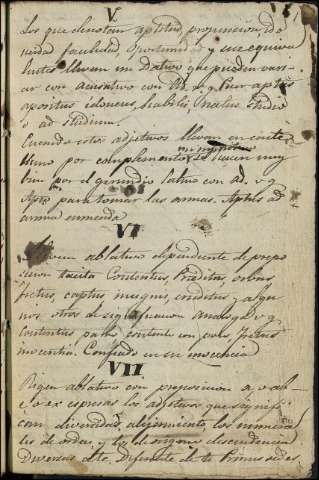 V.
Los que denotan aptitud, propension, ido
neidad facultad Oportunidad y sus equiva
lentes llevan un Dativo que pueden vari
ar con acusativo con Ad. v. g. luar aptus
apositus idoneus, habilis, natus studio
o ad studium.
Cuando estos adjetivos llevan en caste
llano por complemento infinitivo se hacen muy
bien por el gerundio latino con ad. v. g.
Apto para tomar las armas. Aptus ad
arma sumenda
VI
Llevan ablativo dependiente de prepo
sicion tacita Contentus, Præditus, orbus
fretus, captus, inditus y algu
nos otros de significacion analoga v. g
Contentus parvo contento con poco Fretus
inocentia. Confiado en su inocencia
VII
Rigen ablativo con preposicion a, o ab
e o ex espresa los adjetivos que signifi
can diversidad, alejamiento, los numera
les de orden, y los de origen o descendencia
Diversus a te. Diferente de ti Primus